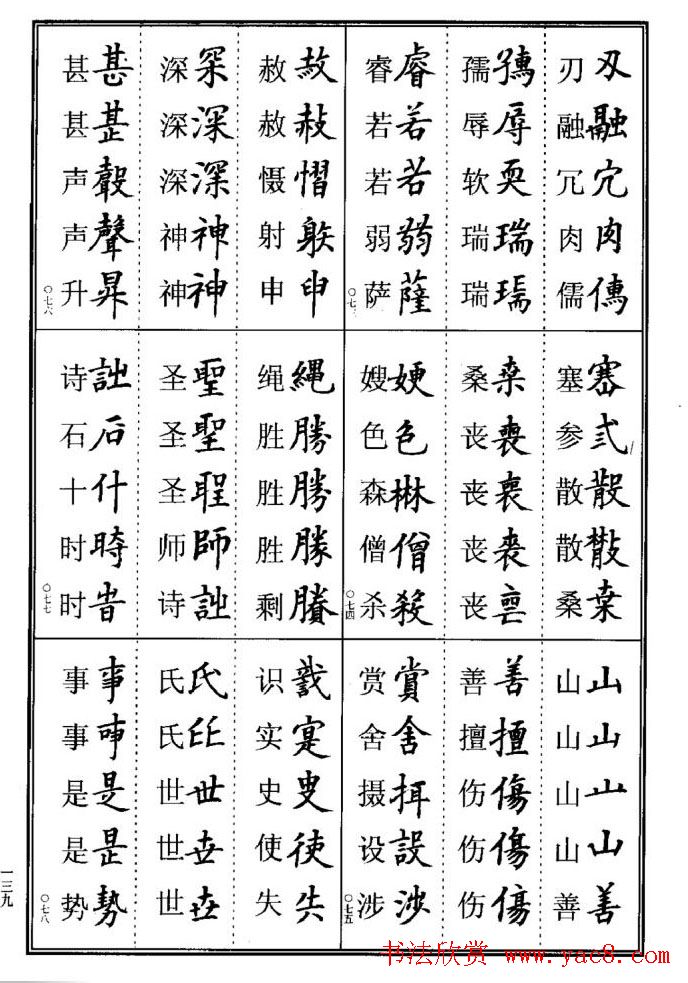 刄融宂肉
刃融冗肉儒
辱耎瑞
孺辱软瑞瑞
睿若若弱薩
睿若若弱萨
〇七三
塞弍散桒
塞参散散桑
桒
桑丧丧丧丧
色僧
嫂色森僧杀
〇七四
山山山山善
山山山山善
善擅傷傷傷
善擅伤伤伤
賞舍設涉
赏舍摄设涉
〇七五
赦赦慴射申
赦赦慑射申
深深神神
深深深神神
甚甚聲昇
甚甚声声升
〇七六
繩勝勝勝賸
绳胜胜胜剩
聖聖師詩
圣圣圣师诗
詩石什時旹
诗石十时时
〇七七
寔使失
识实史使失
氏氏世世世
氏氏世世世
事事是是勢
事事是是势
〇七八
一三九
书法欣赏 www.yac8.com